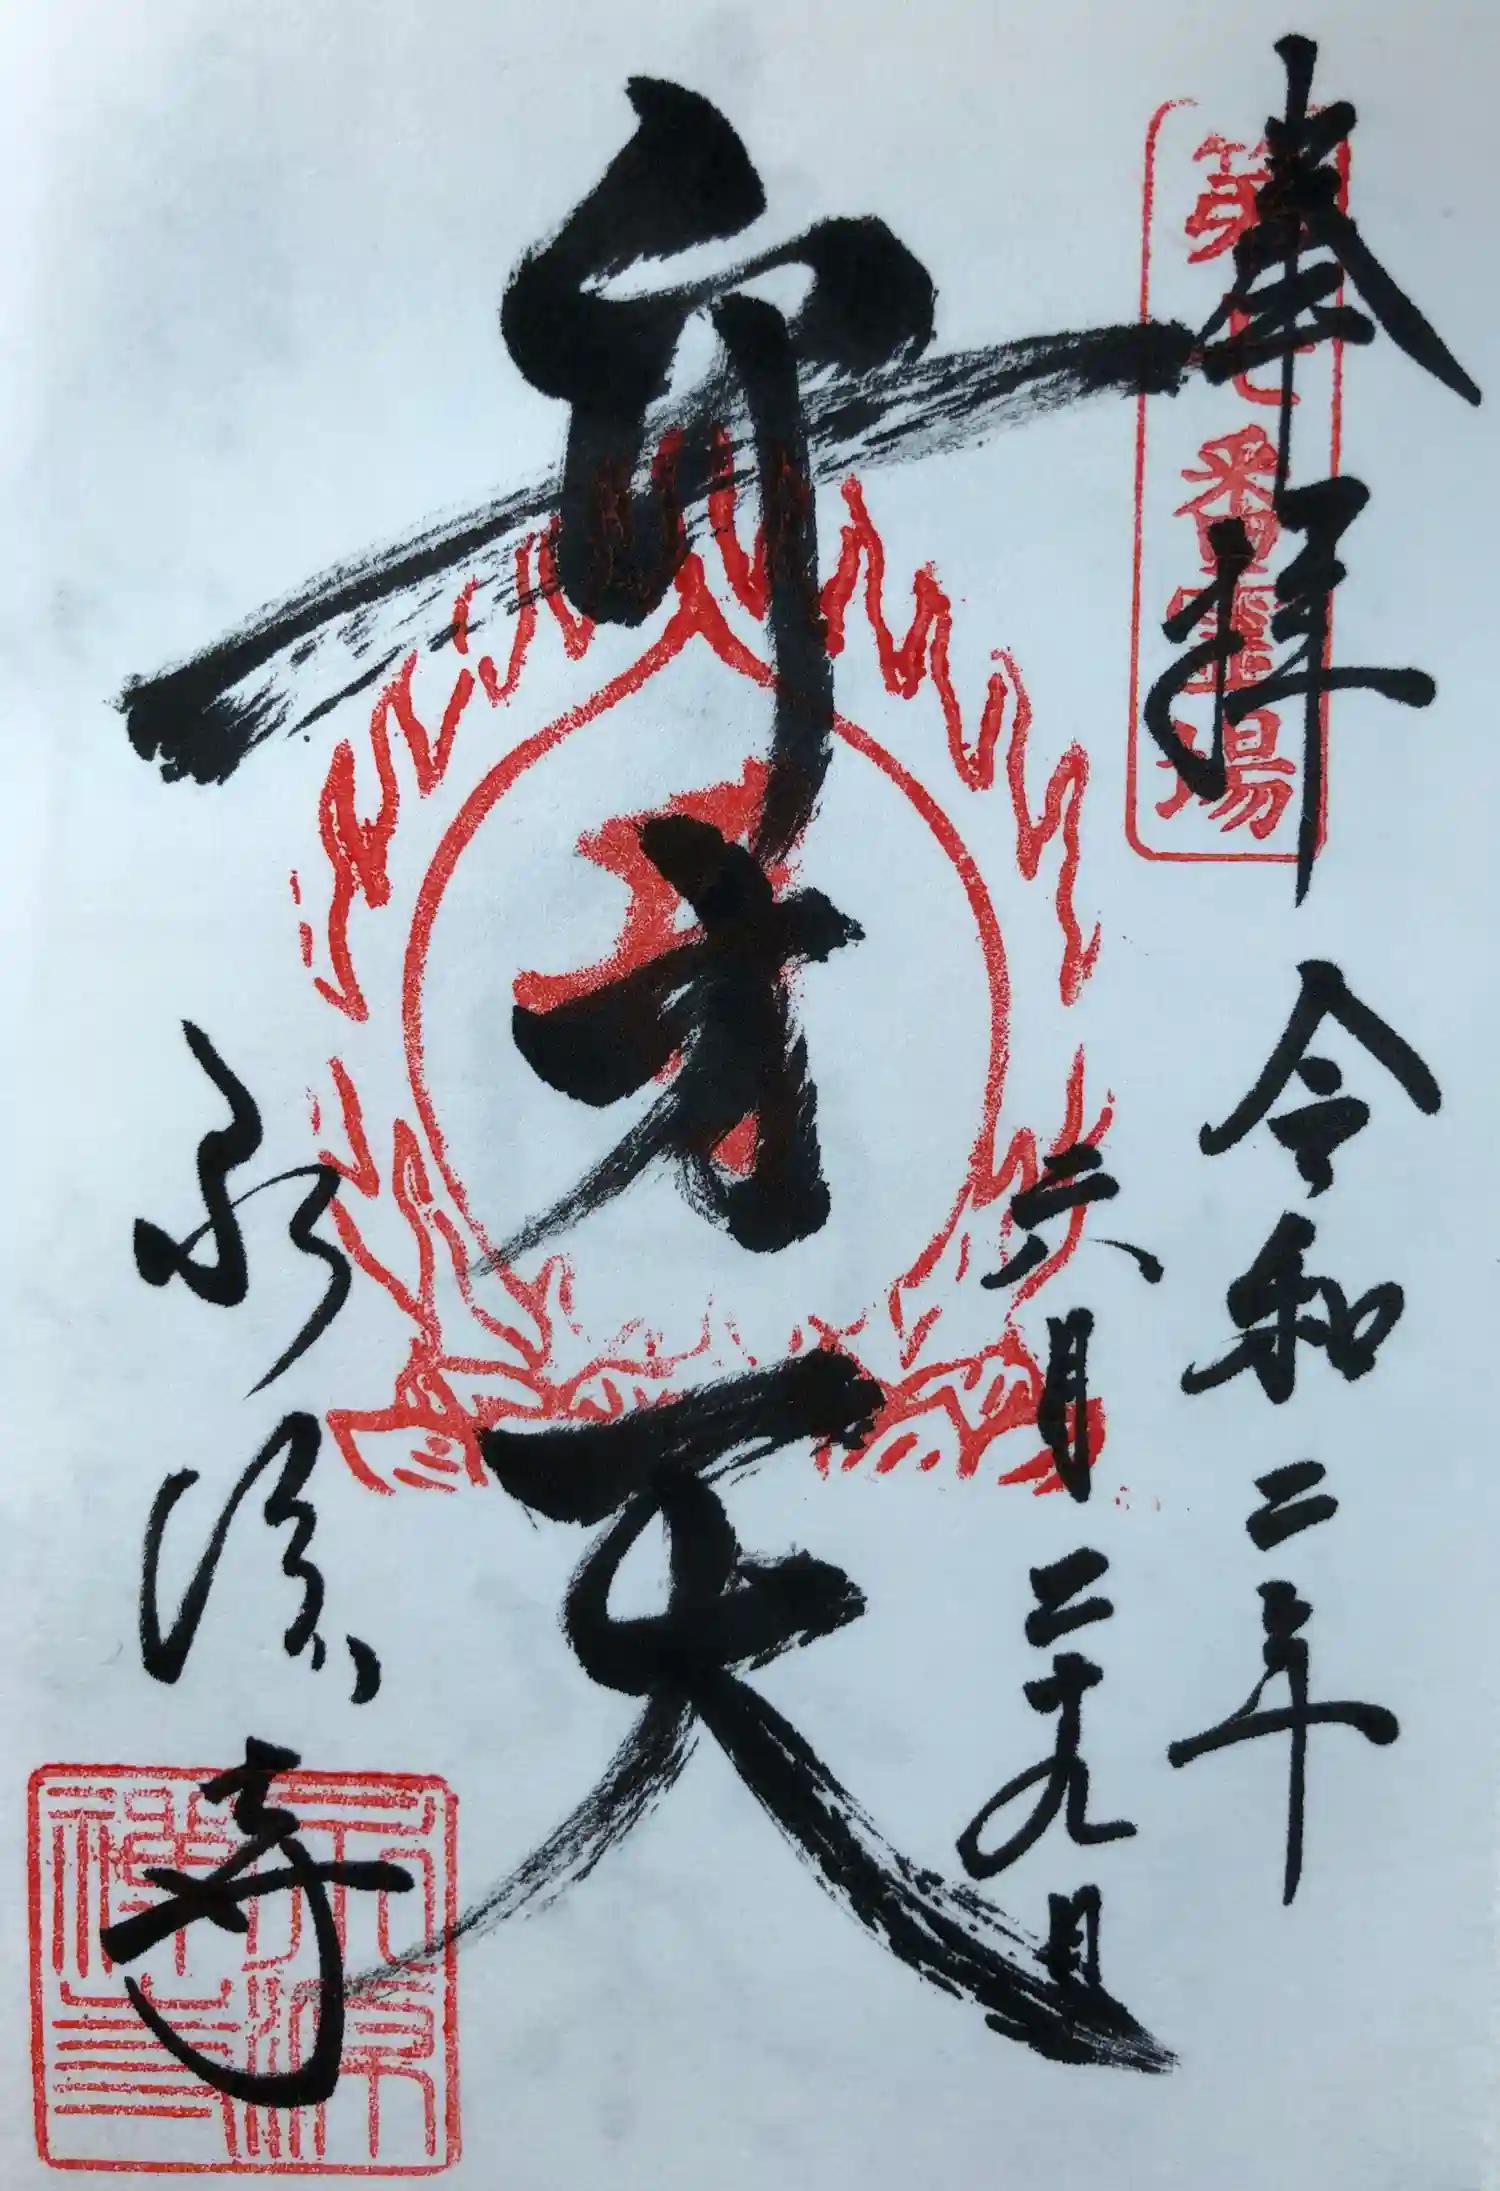 奉拝 令和二年
六月二十九日
第七番霊場
弁才天
永源寺